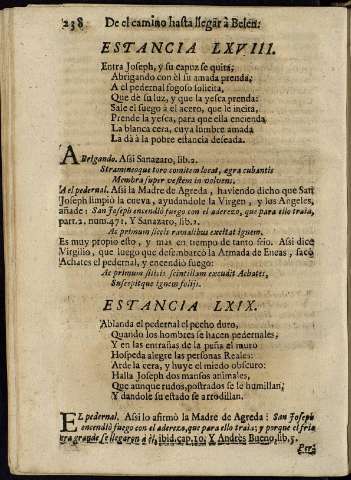 238 De el camino hasta llegar à Belen:
ESTANCIA LXVIII.
Entra Joseph, y su capuz se quita,
Abrigando con èl su amada prenda,
A el pedernal fogoso solicita,
Que dè su luz, y que la yesca prenda:
Sale el fuego à el acero, que le incita,
Prende la yesca, para que ella encienda
La blanca cera, cuya lumbre amada
La dà à la pobre estancia deseada.
ABrigando. Assi Sanazaro, lib.2.
Stramineoque toro comitem locat, ægra cubantis
Membra super vestem in volvens.
A el pedernal. Assi la Madre de Agreda, haviendo dicho que San
Joseph limpiò la cueva, ayudandole la Virgen, y los Angeles,
añade: San Joseph encendiò fuego con el aderezo, que para ello traìa,
part.2. num.471. Y Sanazaro, lib.2.
Ac primum siccis ramalibus excitat ignem.
Es muy propio esto, y mas en tiempo de tanto frio. Assi dice
Virgilio, que luego que desembarcò la Armada de Eneas, sacò
Achates el pedernal, y encendiò fuego:
Ac primum silicis scintillam excudit Achates,
Suscepitque ignem folijs.
ESTANCIA LXIX.
Ablanda el pedernal el pecho duro,
Quando los hombres se hacen pedernales,
Y en las entrañas de la peña el muro
Hospeda alegre las personas Reales:
Arde la cera, y huye el miedo obscuro:
Halla Joseph dos mansos animales,
Que aunque rudos, postrados se le humillan,
Y dandole su estado se arrodillan.
EL pedernal. Assi lo afirmò la Madre de Agreda: San Joseph
encendiò fuego con el aderezo, que para ello traìa; y porque el frio
era grande se llegaron à èl, ibid. cap.10. Y Andrès Bueno, lib.5.
Perà